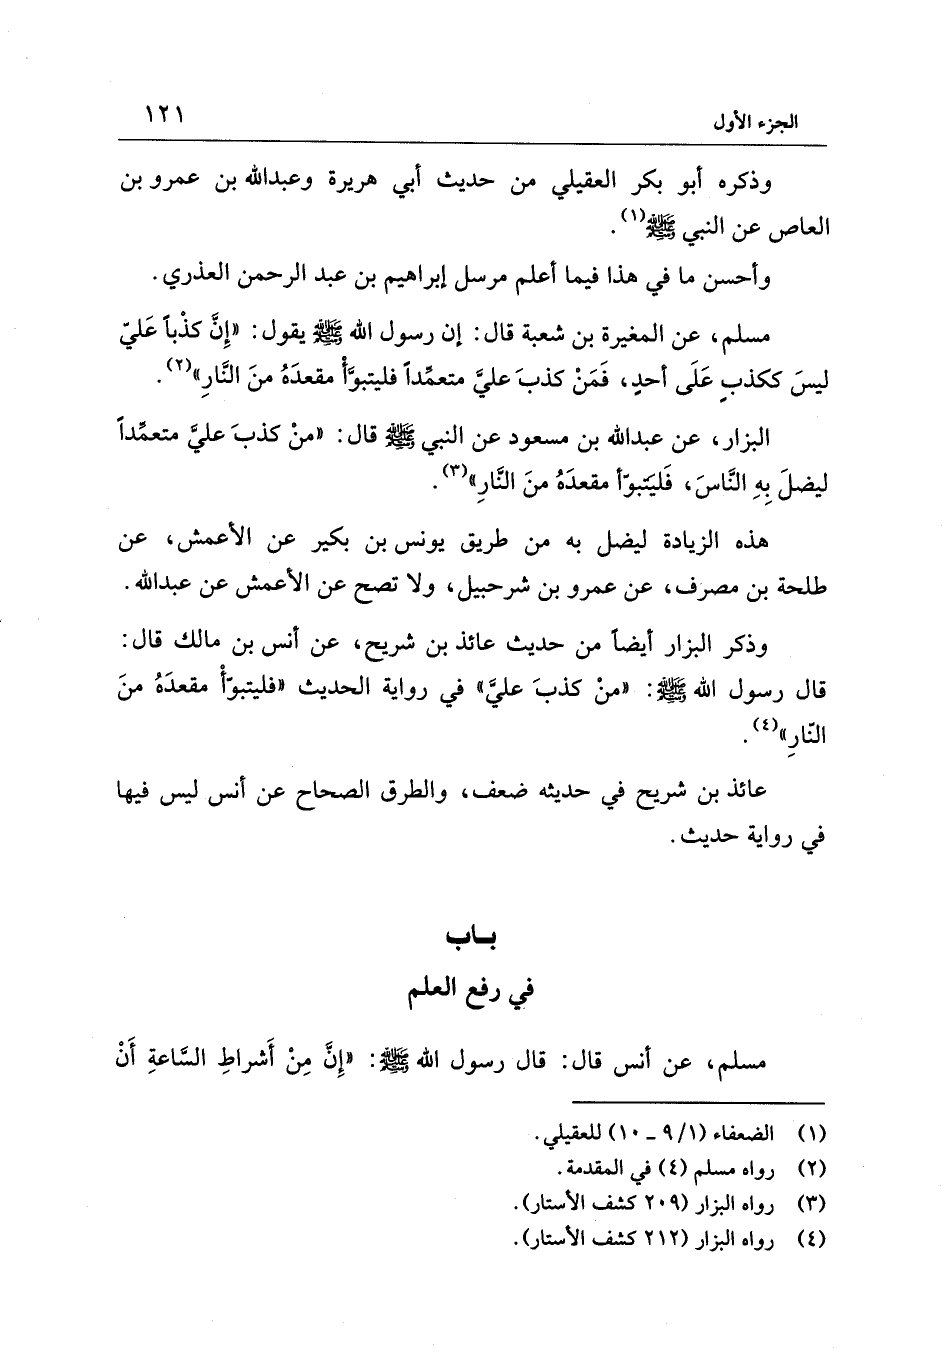 الجزء الأول ١٢١
وذكره أبو بكر العقيلي من حديث أبي هريرة وعبدالله بن عمرو بن
العاص عن النبي ﷺ(١).
وأحسن ما في هذا فيما أعلم مرسل إبراهيم بن عبد الرحمن العذري.
مسلم، عن المغيرة بن شعبة قال: إن رسول الله ﷺ يقول: «إِنَّ كذْباً عَليّ
ليسَ ككذبٍ عَلَى أحدٍ، فَمَنْ كذبَ عليَّ متعمِّداً فليتبوَّأْ مقعدَهُ منَ النَّارِ»(٢).
البزار، عن عبدالله بن مسعود عن النبي ﷺ قال: «منْ كذبَ عليَّ متعمِّداً
ليضلَ بِهِ النَّاسَ، فَليَتبوّأ مقعدَهُ منَ النَّارِ»(٣).
هذه الزيادة ليضل به من طريق يونس بن بكير عن الأعمش، عن
طلحة بن مصرف، عن عمرو بن شرحبيل، ولا تصح عن الأعمش عن عبدالله.
وذكر البزار أيضاً من حديث عائذ بن شريح، عن أنس بن مالك قال:
قال رسول الله ﷺ: «منْ كذبَ عليَّ» في رواية الحديث «فليتبوّأْ مقعدَهُ منَ
النّارِ»(٤).
عائذ بن شريح في حديثه ضعف، والطرق الصحاح عن أنس ليس فيها
في رواية حديث.
بـاب
في رفع العلم
مسلم، عن أنس قال: قال رسول الله ﷺ: «إِنَّ مِنْ أَشراطِ السَّاعةِ أَنْ
(١) الضعفاء (٩/١ ـ ١٠) للعقيلي.
(٢) رواه مسلم (٤) في المقدمة.
(٣) رواه البزار (٢٠٩ كشف الأستار).
(٤) رواه البزار (٢١٢ كشف الأستار).